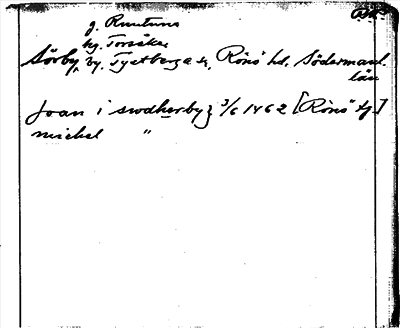 g. Runtuna
hg. Torsåker
Sörby, by, Tystberga sn, Rönö hd, Södermanl.
län
Joan i swdherby } 3/6 1462 [Rönö hg.]
michel "